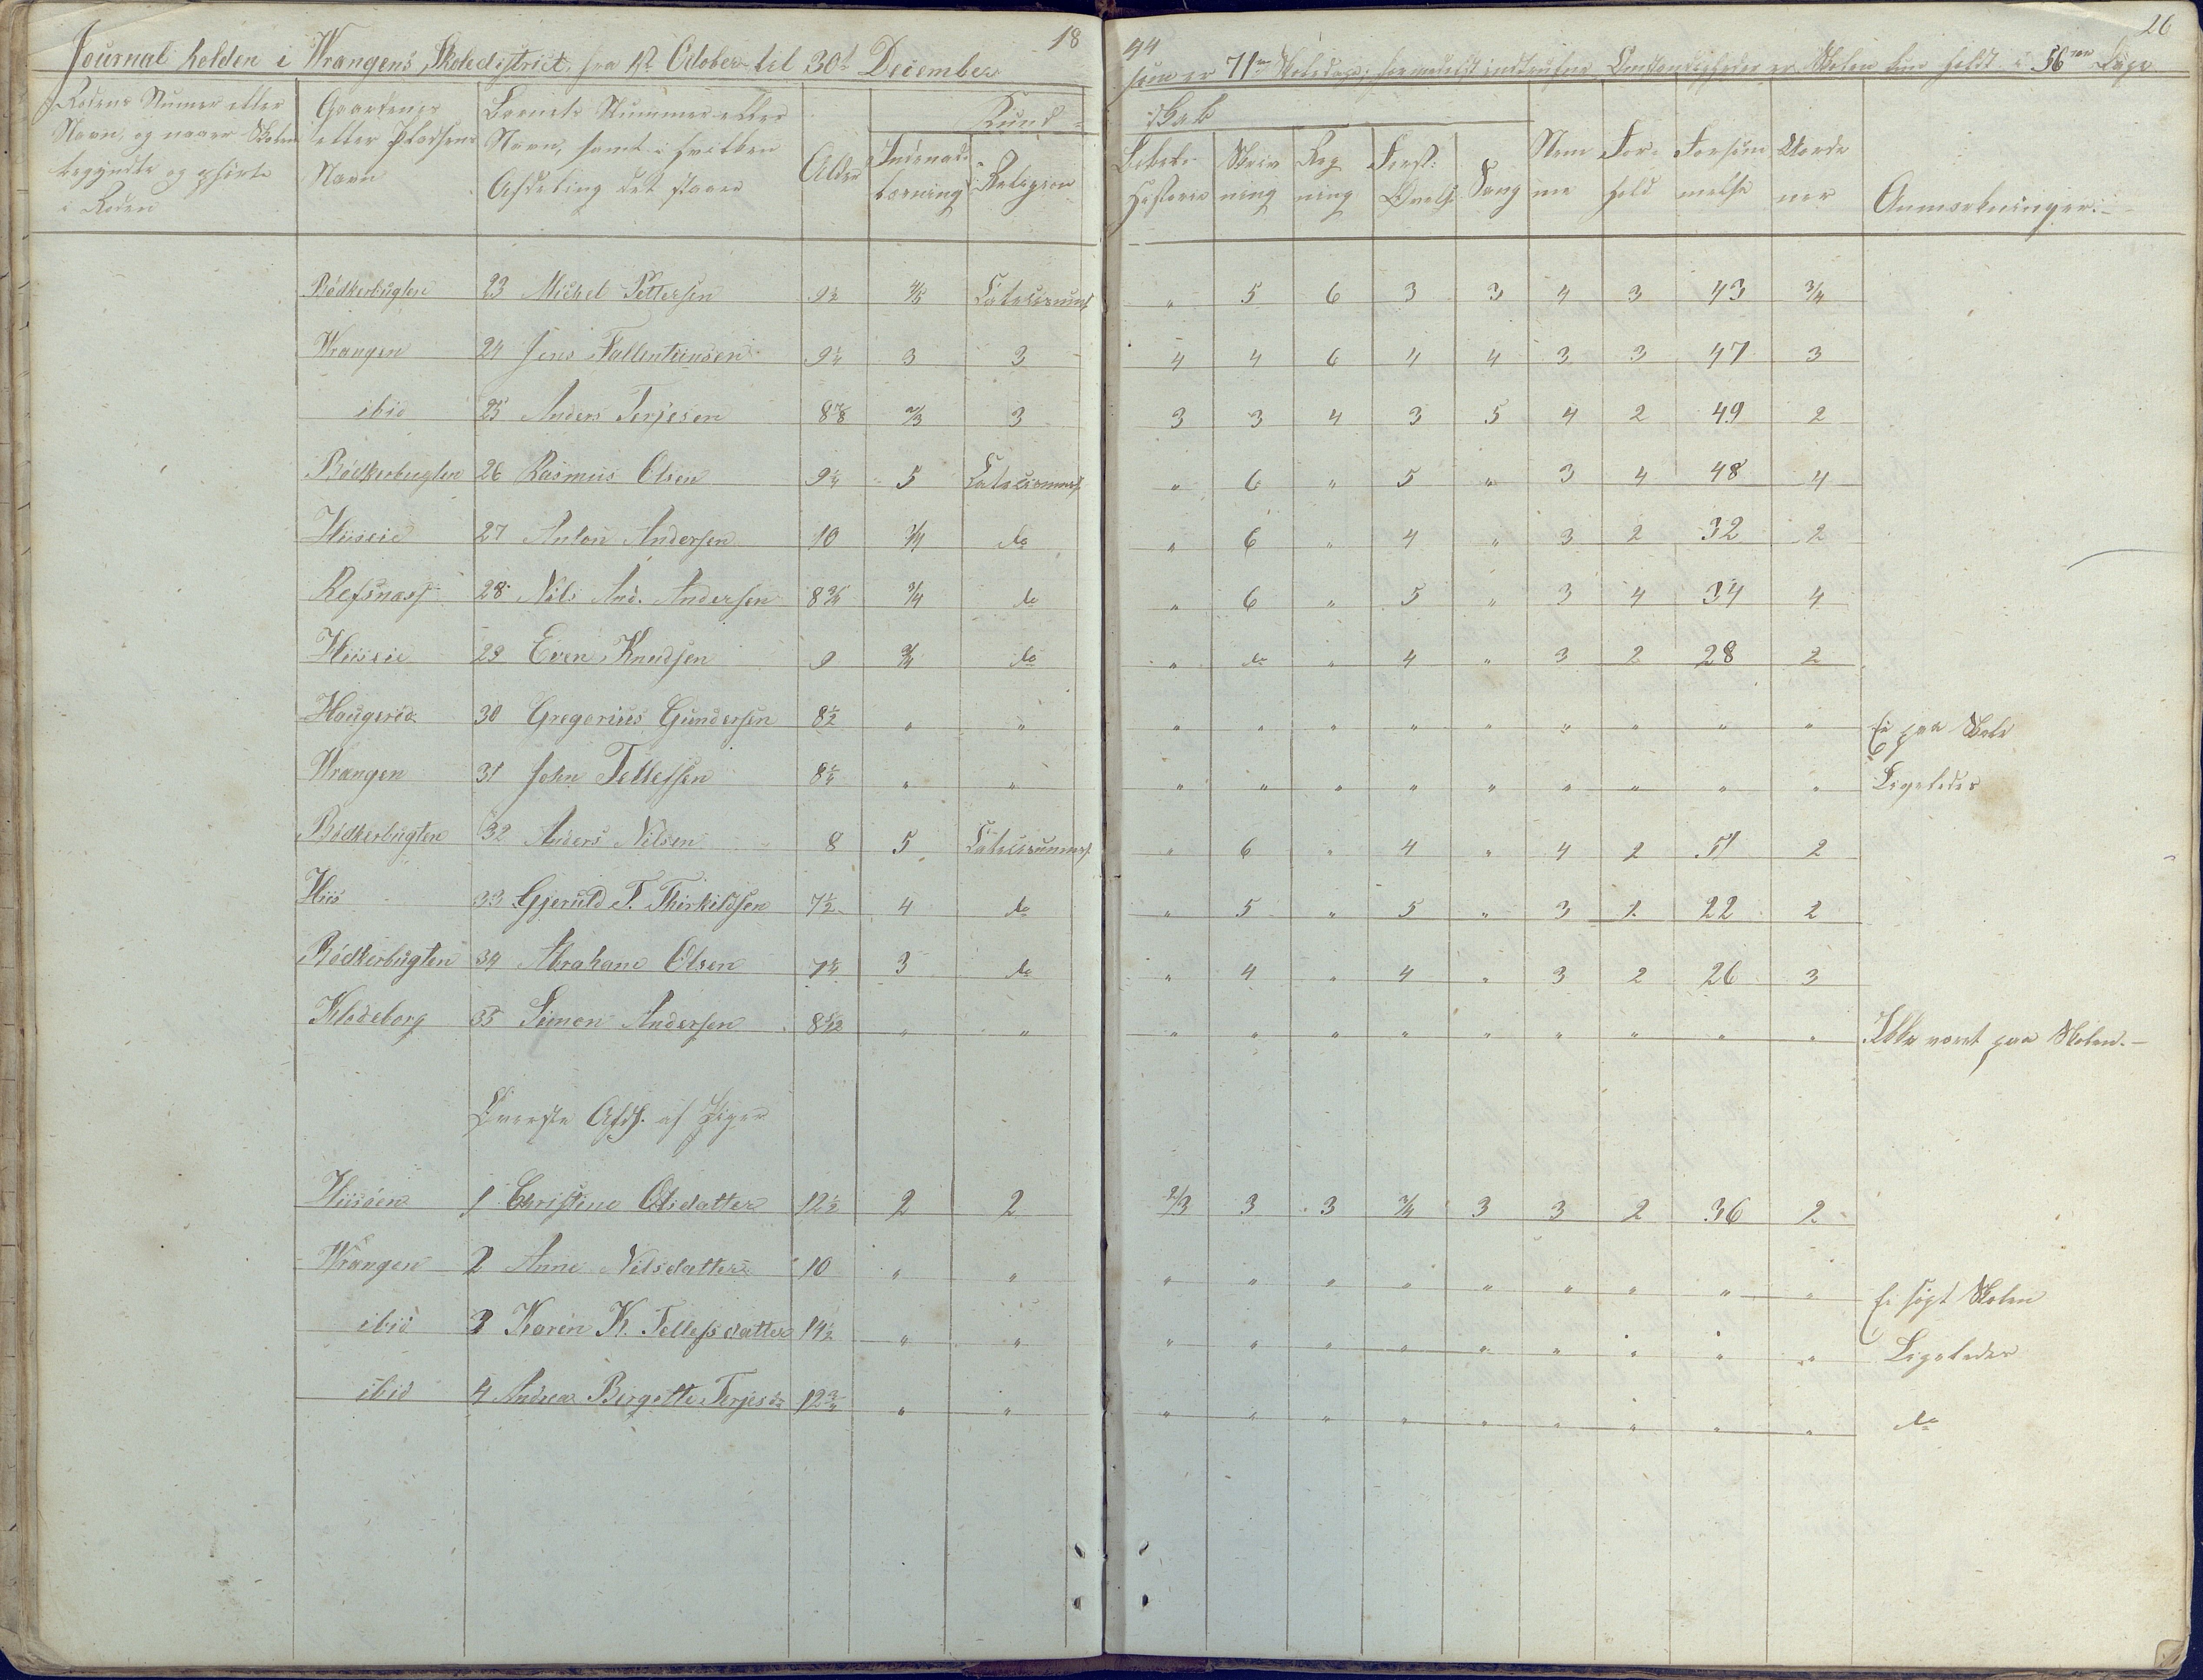 Journal holden i Wrangens Skoledistrict fra 1st October til 30te December 18
44 26
som er 71 Skoledage; formedelst indtrufne Omstændigheder er Skolen kun holdt i 56 Dage
Rodens Numer eller Navn, og naar Skolen begyndte og ophørte i Roden
Gaardenes eller Pladsens Navn
Barnets Nummer eller Navn, samt i hvilken Afdeling det staaer
Alder
Kund-
skab
Indenad-læsning
Religion
Bibel-Historie
Skriv-ning
Reg-ning
Forst: Øvelse
Sang
Nem-me
For-hold
Forsøm-melse
Anmærkninger.
Bødkerbugten 23 Michel Pettersen 9½ 4/5 Catecismus " 5 6 3 3 4 3 43 3/4
Wrangen 24 Jens Fallentinsen 9¼ 3 3 4 4 6 4 4 3 3 47 3
ibid 25 Anders Terjesen 8⅞ 2/3 3 3 3 4 3 5 4 2 49 2
Bødkerbugten 26 Rasmus Olsen 9¼ 5 Catecismus " 6 " 5 " 3 4 48 4
Hiiseie 27 Anton Andersen 10 3/4 do " 6 " 4 " 3 2 32 2
Refsnæss 28 Nils And. Andersen 8¾ 3/4 do " 6 " 5 " 3 4 34 4
Hiiseie 29 Even Knudsen 9 3/4 do " do " 4 " 3 2 28 2
Haugerød 30 Gregorius Gundersen 8½ " " " " " " " " " " " Ei paa Skole
Wrangen 31 John Tellefsen 8¼ " " " " " " " " " " " Ligeledes
Bødkerbugten 32 Anders Nilsen 8 5 Catecismus " 6 " 4 " 4 2 51 2
Hiis 33 Gjeruld T. Thirkildsen 7½ 4 do " 5 " 5 " 3 2 22 2
Bødkerbugten 34 Abraham Olsen 7¼ 3 do " 4 " 4 " 3 2 26 3
Klodeborg 35 Simon Andersen 8 5/12 " " " " " " " " " " " Ikke været paa Skolen.
Øverste Afd. af Piger
Hiisøen 1 Christine Olsdatter 12½ 2 2 2/3 3 3 3/4 3 3 2 36 2
Wrangen 2 Anne Nilsdatter 10 " " " " " " " " " " " Ei søgt Skolen
ibid 3 Karen K. Tellefsdatter 14½ " " " " " " " " " " " Ligeledes
ibid 4 Andrea Birgette Terjesdr 12¾ " " " " " " " " " " " do